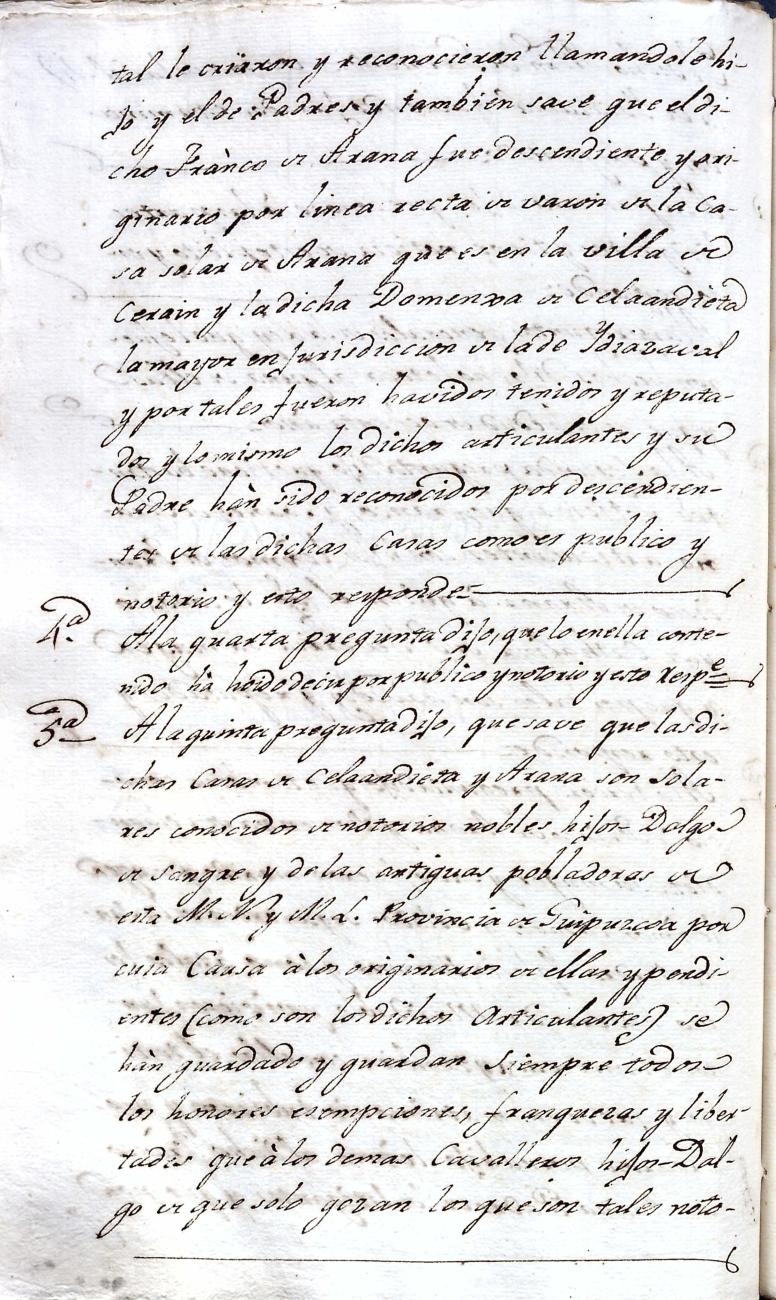 tal le criaron y reconocieron llamandole hi-
jo y el de Padres y tambien save que el di-
cho Franco de Arana fue descendiente y ori-
ginario por linea recta de varon de la Ca-
sa solar de Arana que es en la villa de
Cerain y la dicha Domenxa de Celaandieta
la mayor en Jurisdiccion de la de Ydiazaval
y por tales fueron havidos tenidos y reputa-
dos y lo mismo los dichos articulantes y su
Padre hàn sido reconocidos por descendien-
tes de las dichas Casas como es publico y
notorio y esto responde
4.ª A la quarta pregunta dijo, que lo en ella conte-
nido ha hoido decir por publico y notorio y esto Respe
5ª A la quinta pregunta dijo, que save que las di-
chas Casas de Celaandieta y Arana son Sola-
res conocidos de notorios nobles hijos-Dalgo
de Sangre y de las antiguas pobladoras de
esta M. N. y M. L. Provincia de Guipuzcoa por
cuia Causa à los originarios de ellas y pendi-
entes (como son los dichos Articulantes) se
hàn guardado y guardan siempre todos
los honores esempciones, franquezas y liber-
tades que à los demas Cavalleros hijos-Dal-
go de que solo gozan los que son tales noto-